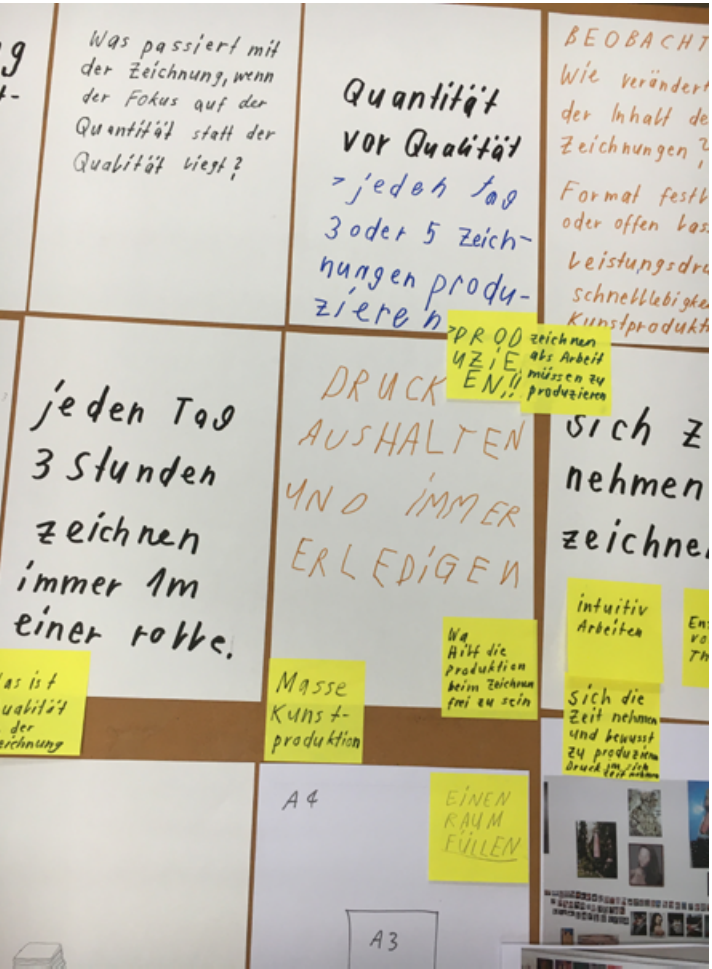 g
t-
Was passiert mit
der Zeichnung, wenn
der Fokus auf der
Quantität statt der
Qualität liegt?
Quantität
vor Qualität
> jeden Tag
3 oder 5 Zeich-
nungen produ-
zieren
BEOBACHT
Wie verändert
der Inhalt de
Zeichnungen?
Format festl
oder offen las
Leistungsdru
schnelllebigke
Kunstprodukti
>PROD
UZIE
EN!!
zeichnen
als Arbeit
müssen zu
produzieren
jeden Tag
3 Stunden
zeichnen
immer 1m
einer rolle.
DRUCK
AUSHALTEN
UND IMMER
ERLEDIGEN
sich z
nehmen
zeichne
intuitiv
Arbeiten
En
vo
Th
Wa
Hilf die
Produktion
beim Zeichnen
frei zu sein
as ist
ualität
der
eichnung
Masse
Kunst-
produktion
sich die
Zeit nehmen
und bewusst
zu produzieren
Druck im sich
Zeit nehmen
A4
EINEN
RAUM
FÜLLEN
A3